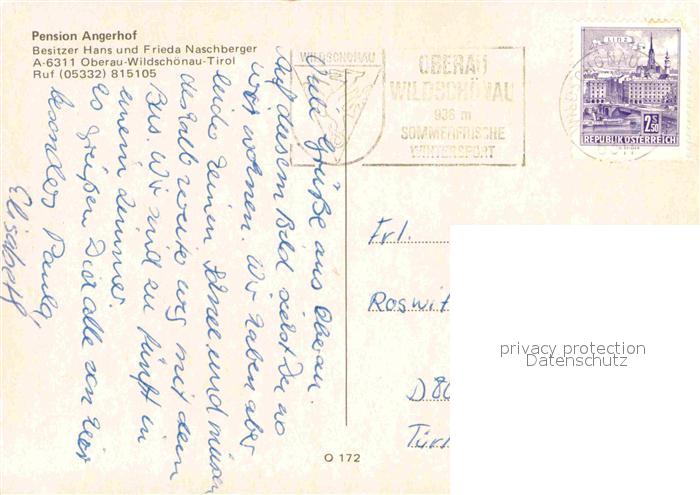 Pension Angerhof
Besitzer Hans und Frieda Naschberger
A-6311 Oberau-Wildschönau-Tirol
Ruf (05332) 815105
WILDSCHÖNAU
OBERAU
WILDSCHÖNAU
936 m
SOMMERFRISCHE
WINTERSPORT
LINZ
2.50
S
REPUBLIK ÖSTERREICH
Viele Grüße aus Oberau.
Auf diesem Bild siehst Du wo
wir wohnen. Wir haben aber
leider keinen Schnee und müssen
deshalb weiter weg mit dem
Bus. Wir sind zu fünft in
einem Zimmer.
Es grüßen Dich alle von hier
besonders
Elisabeth
Frl.
Roswit
D 80
Türk
privacy protection
Datenschutz
O 172